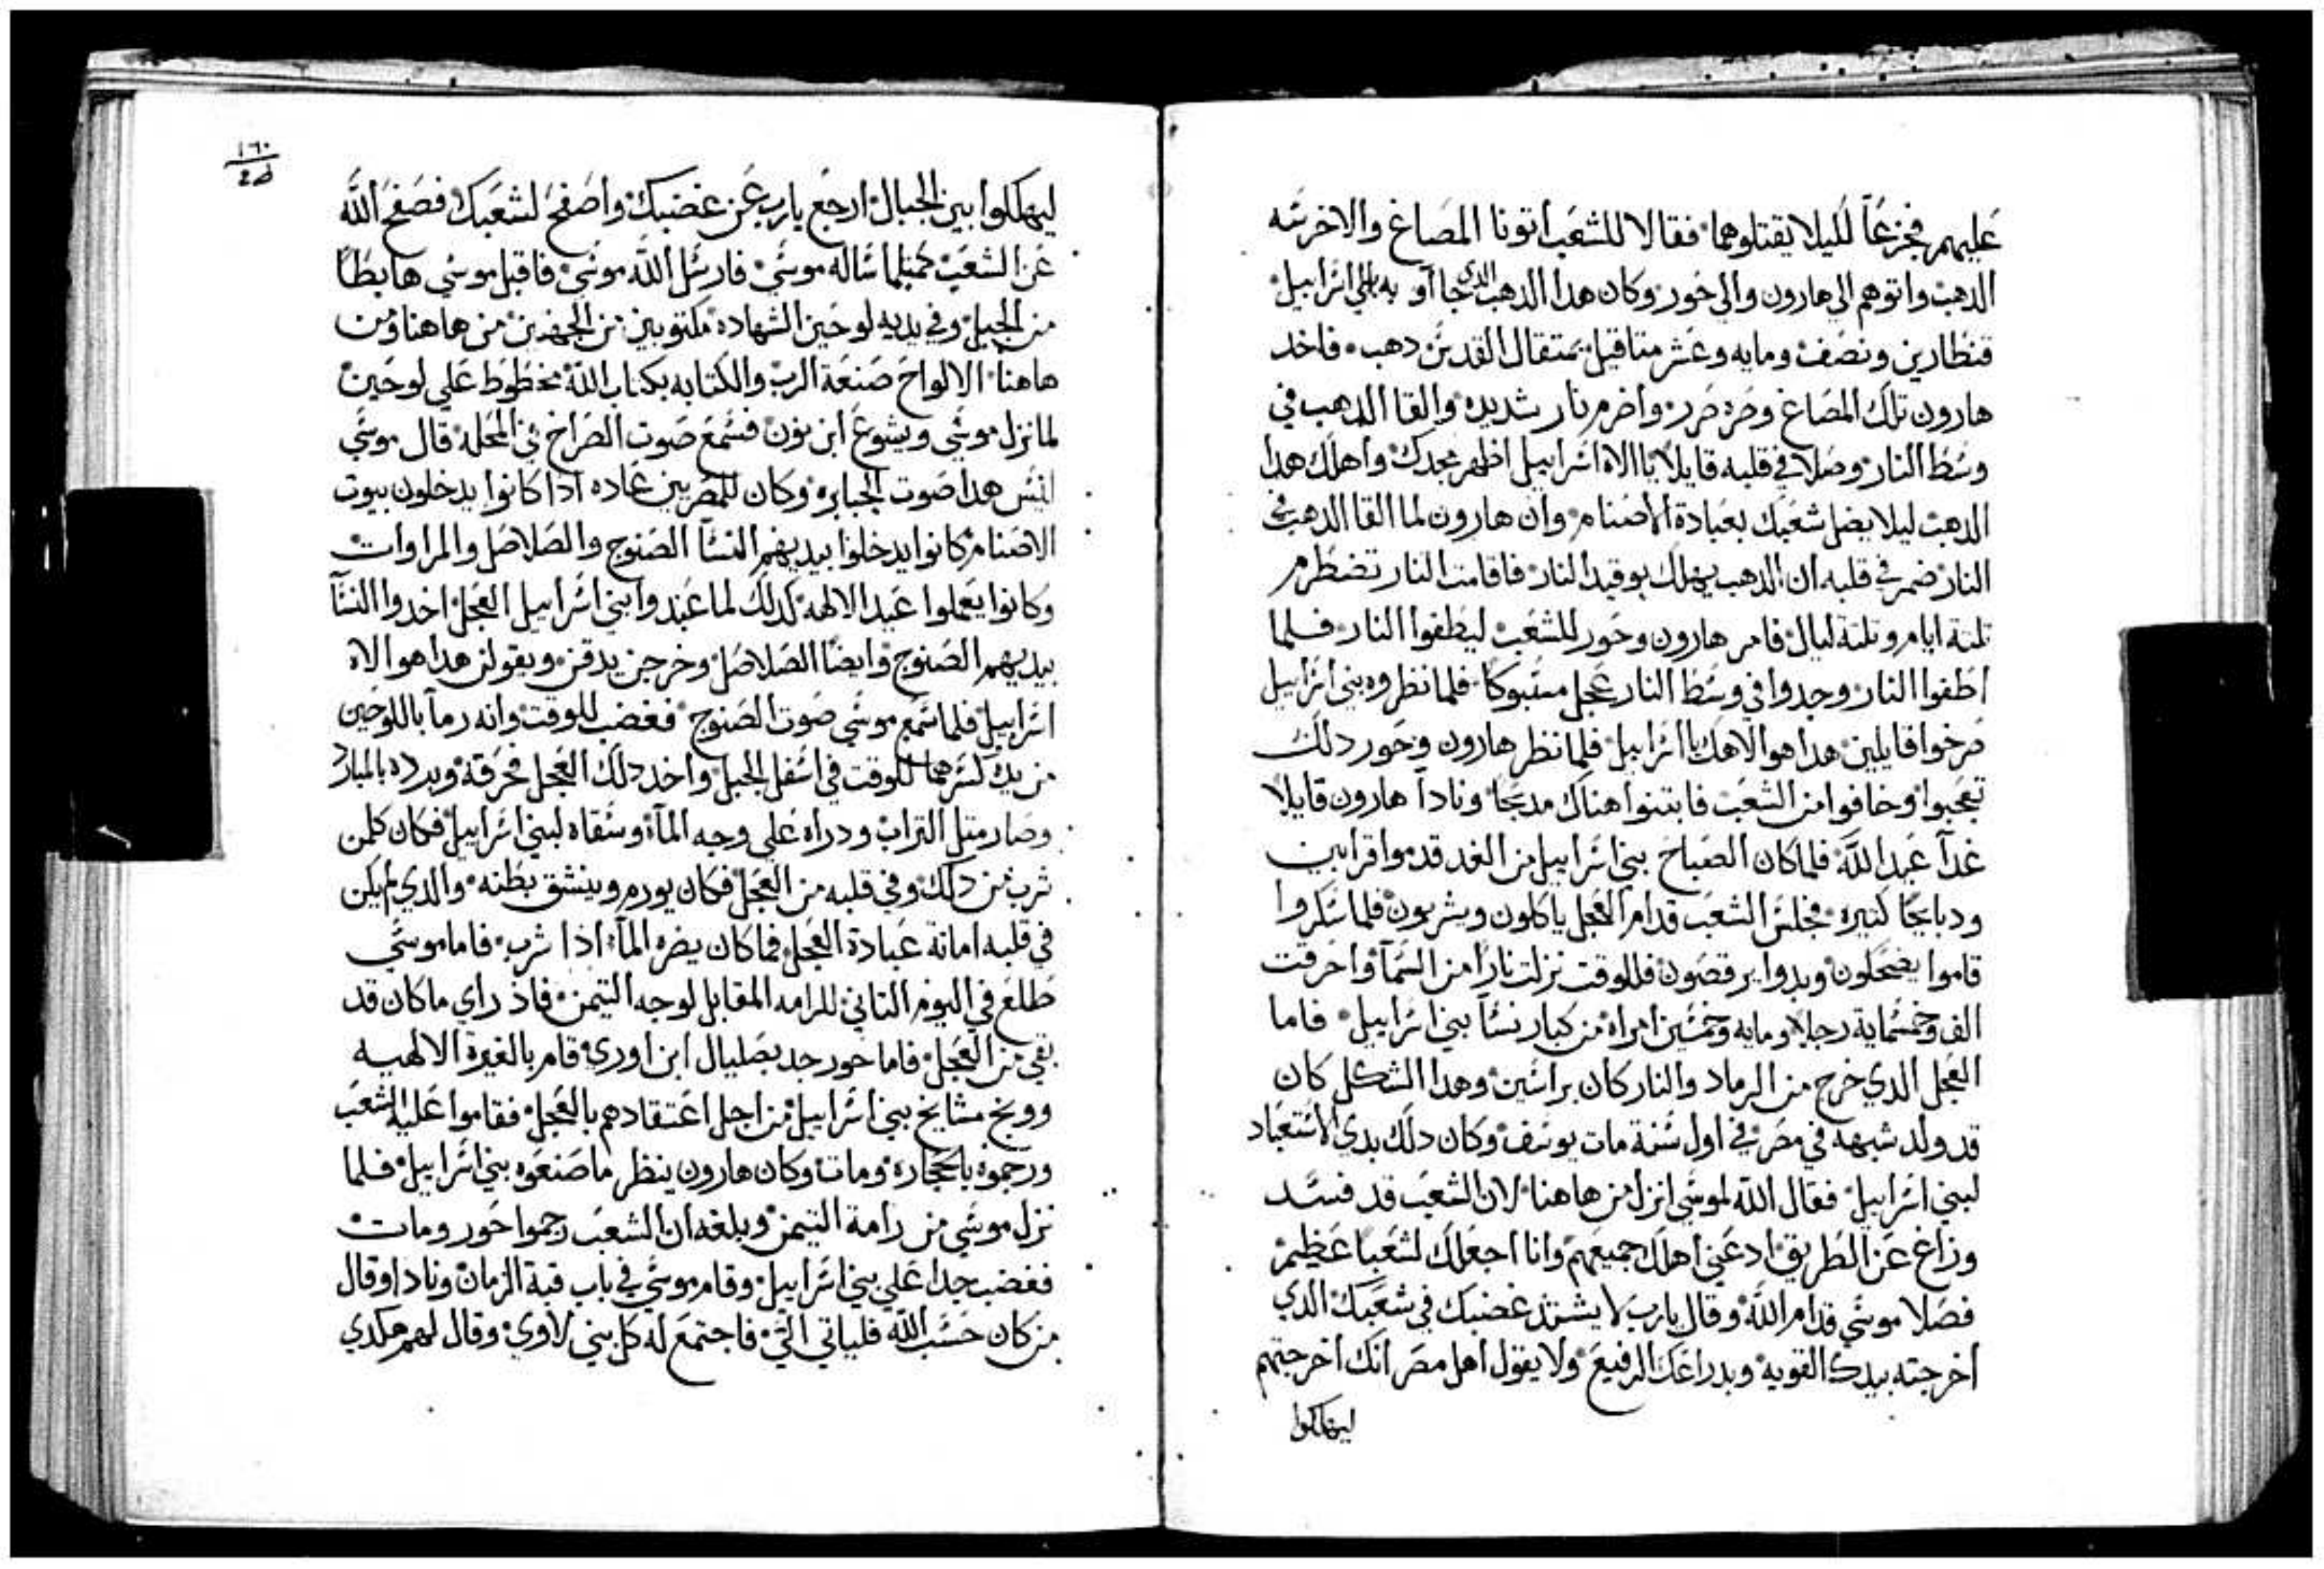 عليهم فجزعا لليلا يقتلوهما فقالا للشعب اتونا المصاغ والاخرسه
الدهب واتوهم الي هارون والي حور وكان هدا الدهب الدي جااو به بني اسراييل
قنطارين ونصف ومايه وعشر متاقيل بمتقال القدس دهب فاخد
هارون تلك المصاغ وصره صرر واضرم نار شديده والقا الدهب في
وسط النار وصلا في قلبه قايلا يا الاه اسراييل اظهر مجدك واهلك هدا
الدهب ليلا يضل شعبك بعبادة الاصنام وان هارون لما القا الدهب في
النار ضمر في قلبه ان الدهب يهلك بوقيد النار فاقامت النار تضطرم
تلتة ايام وتلتة ليال فامر هارون وحور للشعب ليطفوا النار فلما
اطفوا النار وجدوا في وسط النار عجل مسبوكا فلما نظروه بني اسراييل
صرخوا قايلين هدا هو الاهك يا اسراييل فلما نظر هارون وحور دلك
تعجبوا وخافوا من الشعب فابتنوا هناك مدبحا ونادا هارون قايلا
غدا عيد الله فلما كان الصباح بني اسراييل من الغد قدموا قرابين
ودبايحا كتيره فجلس الشعب قدام العجل ياكلون ويشربون فلما سكروا
قاموا يضحكون وبدوا يرقصون فللوقت نزلت نارا من السما واحرقت
الف وخمسماية رجلا ومايه وخمسين امراه من كبار نسا بني اسراييل فاما
العجل الدي خرج من الرماد والنار كان براسين وهدا الشكل كان
قد ولد شبهه في مصر في اول سنة مات يوسف وكان دلك بدي الاستعباد
لبني اسراييل فقال الله لموسي انزل من هاهنا لان الشعب قد فسد
وزاغ عن الطريق ادعني اهلك جميعهم وانا اجعلك لشعبا عظيم
فصلا موسي قدام الله وقال يارب لا يشتد غضبك في شعبك الدي
اخرجته بيدك القويه وبدراعك الرفيع ولا يقول اهل مصر انك اخرجتهم
ليهلكوا
١٦٠
ليهلكوا بين الجبال ارجع يارب عن غضبك واصفح لشعبك فصفح الله
عن الشعب كمتلما ساله موسي فارسل الله موسي فاقبل موسي هابطا
من الجبل وفي يديه لوحين الشهاده مكتوبين من الجهتين من هاهنا ومن
هاهنا الالواح صنعة الرب والكتابه بكتاب الله مخطوط علي لوحين
لما نزل موسي ويشوع ابن نون فسمع صوت الصراخ في المحله قال موسي
ليس هدا صوت الجبابره وكان للمصريين عاده ادا كانوا يدخلون بيوت
الاصنام كانوا يدخلوا بيديهم النسا الصنوج والصلاصل والمراوات
وكانوا يعملوا عيد الالهه كدلك لما عبدوا بني اسراييل العجل اخدوا النسا
بيديهم الصنوج وايضا الصلاصل وخرجن يدقن ويقولن هدا هو الاه
اسراييل فلما سمع موسي صوت الصنوج فغضب للوقت وانه رما باللوحين
من يده كسرهما للوقت في اسفل الجبل واخد دلك العجل فحرقه وبرده بالمبارد
وصار متل التراب ودراه علي وجه الما وسقاه لبني اسراييل فكان كلمن
شرب من دلك وفي قلبه من العجل فكان يورم وينشق بطنه والدي لم يكن
في قلبه امانة عبادة العجل فما كان يضره الما اذا شرب فاما موسي
طلع في اليوم التاني للرامه المقابل لوجه التيمن فاذ راي ما كان قد
بقي من العجل فاما حور جد بصليال ابن اوري قام بالغيرة الالهيه
ووبخ مشايخ بني اسراييل من اجل اعتقادهم بالعجل فقاموا عليه الشعب
ورجموه بالحجاره ومات وكان هارون ينظر ما صنعوه بني اسراييل فلما
نزل موسي من رامة التيمن وبلغه ان الشعب رجموا حور ومات
فغضب جدا علي بني اسراييل وقام موسي في باب قبة الزمان ونادا وقال
من كان حسب الله فلياتي الي فاجتمع له كل بني لاوي وقال لهم هكدي